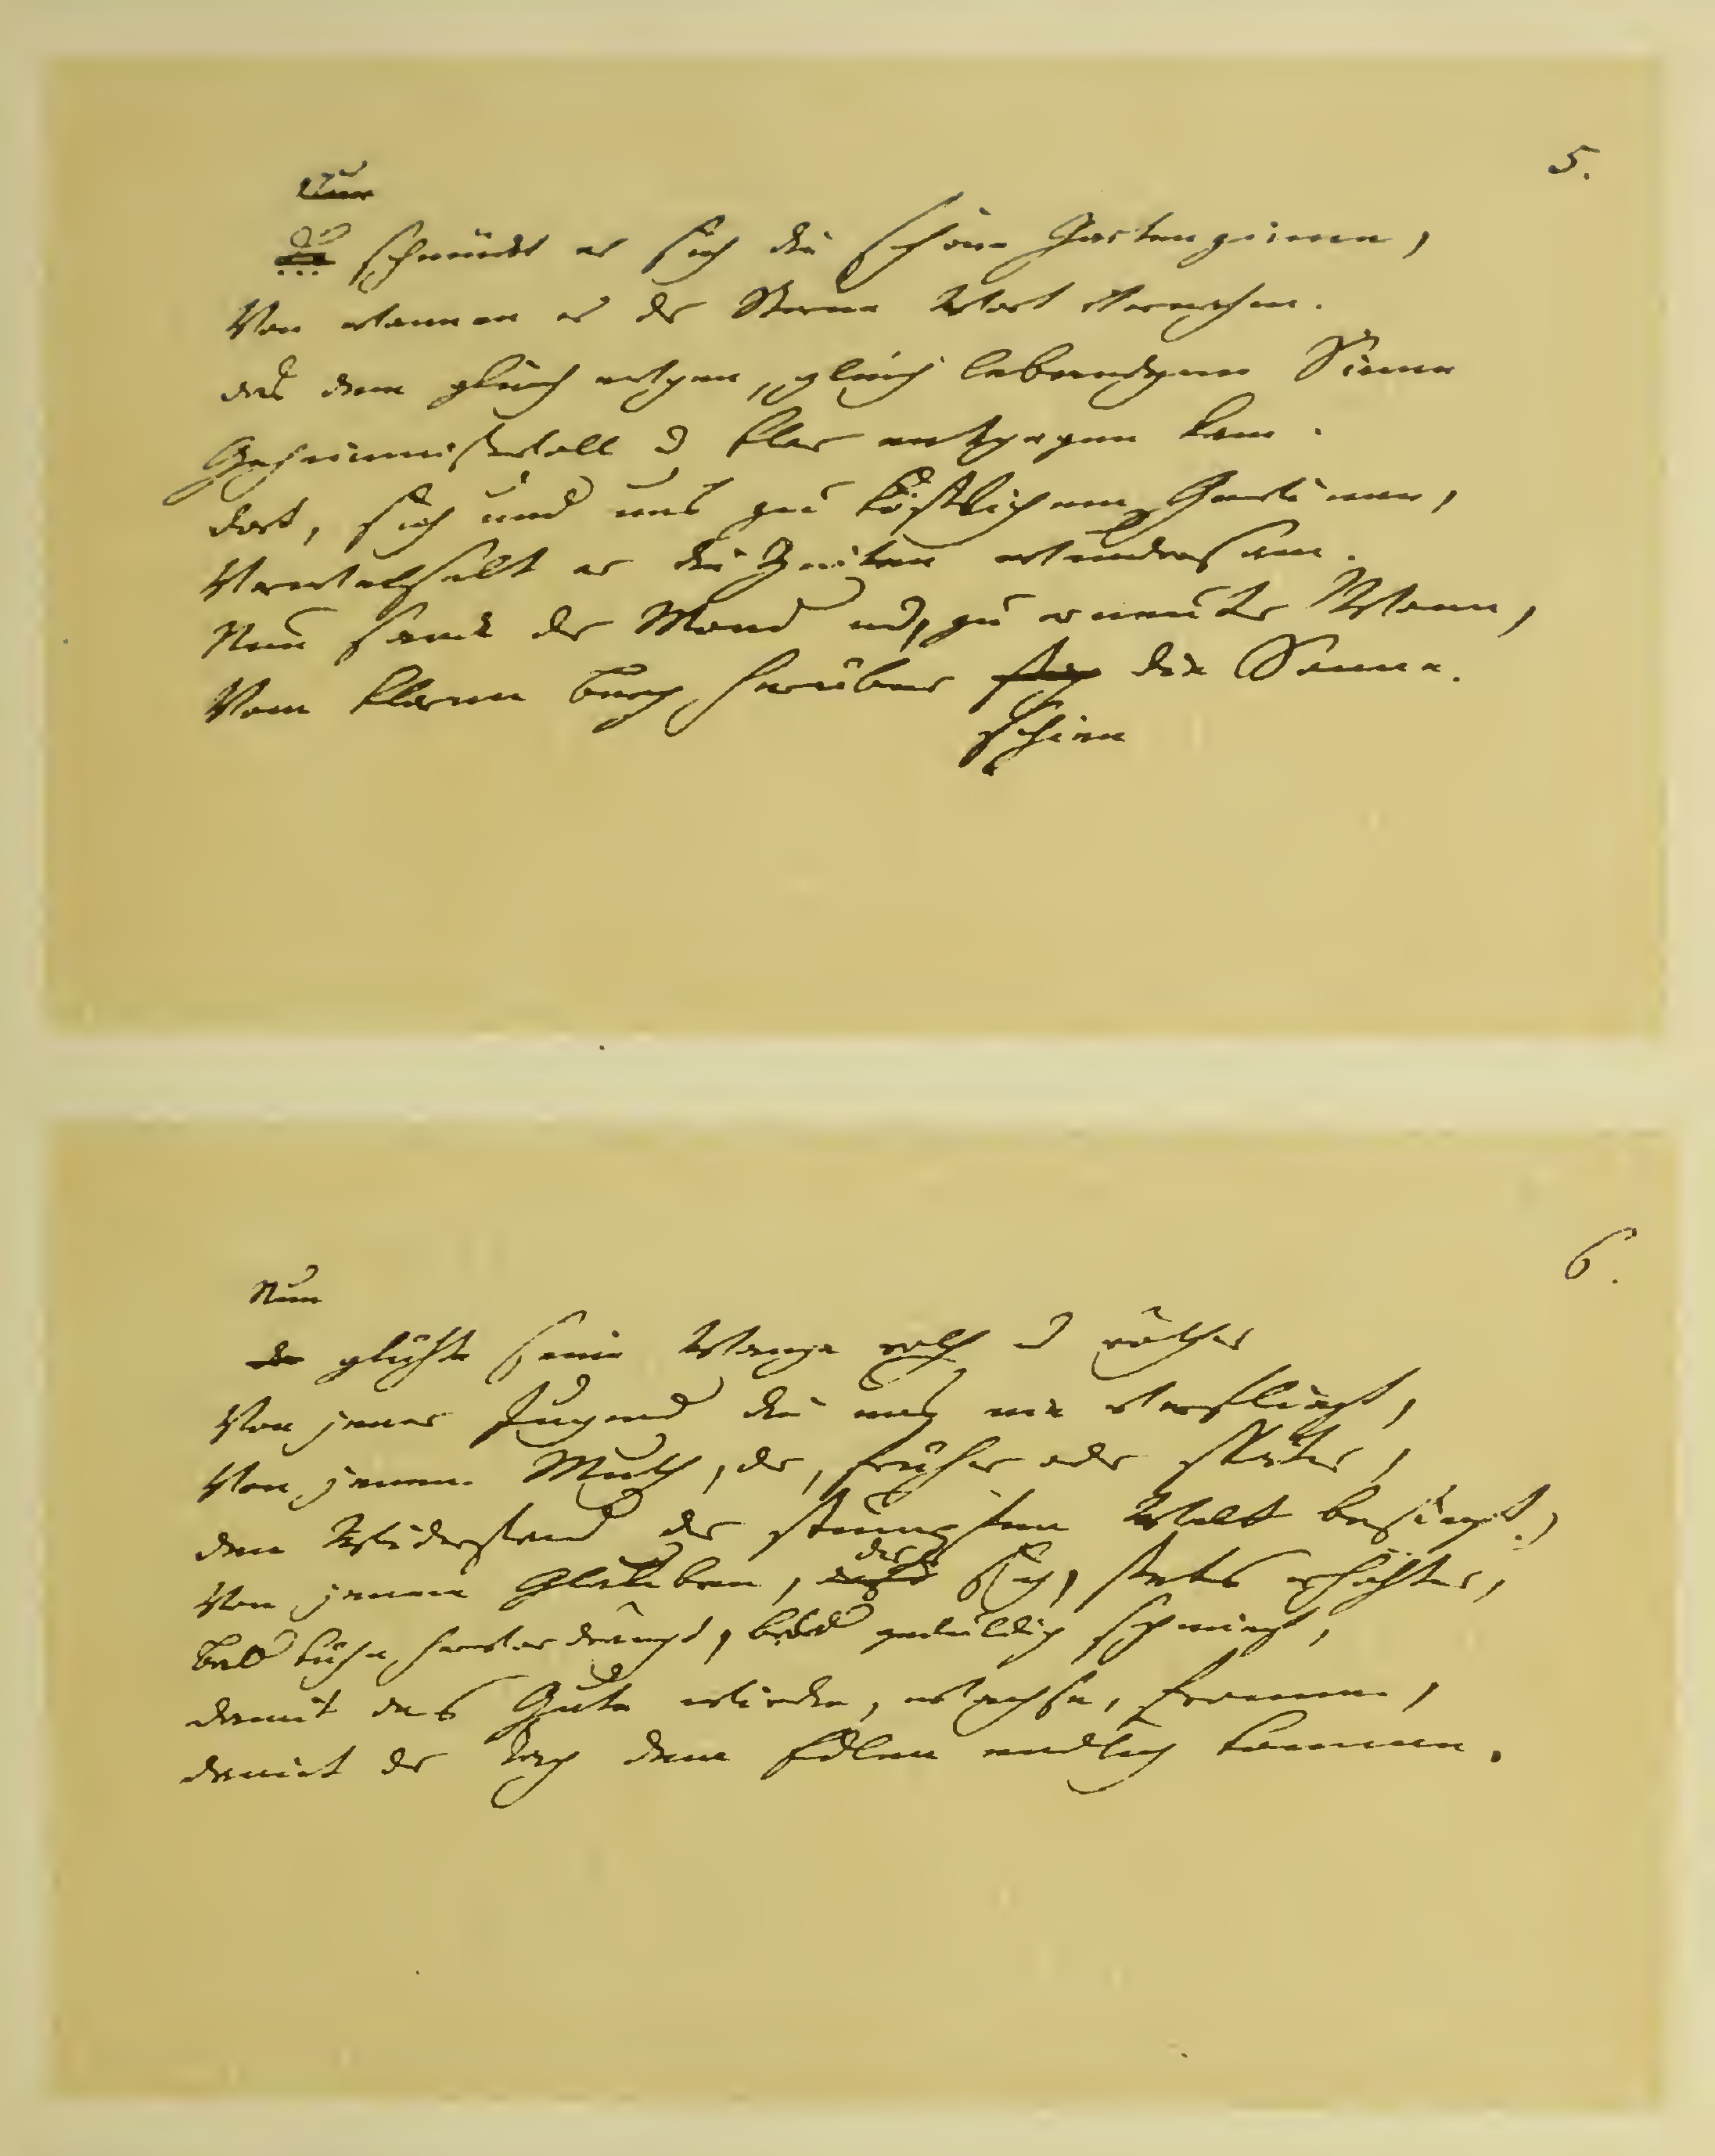 5.
Nun
Da schmückt er sich die schöne Gartenzinne,
Von wannen er der Sterne Wort vernahm.
das dem gleich ewgen, gleich lebendgen Sinne
Geheimnißvoll u klar entgegen kam.
dort, sich und uns zu köstlichem Gewinne,
Verwechselt er die Zeiten wundersam.
Nun sank der Mond und, zu erneuter Wonne,
Vom klaren Berg herüber stieg die Sonne.
schien
6.
Nun
da glühte seine Wange roth u röther
Von jener Jugend die uns nie verfliegt,
Von jenem Muth, der, früher oder später,
den Widerstand der stumpfen Welt besiegt,
der
Von jenem Glauben, sich, stets erhöhter,
bald kühn hervordrängt, bald geduldig schmiegt,
damit das Gute wircke, wachse, fromme,
damit der Tag dem Edlen endlich komme.